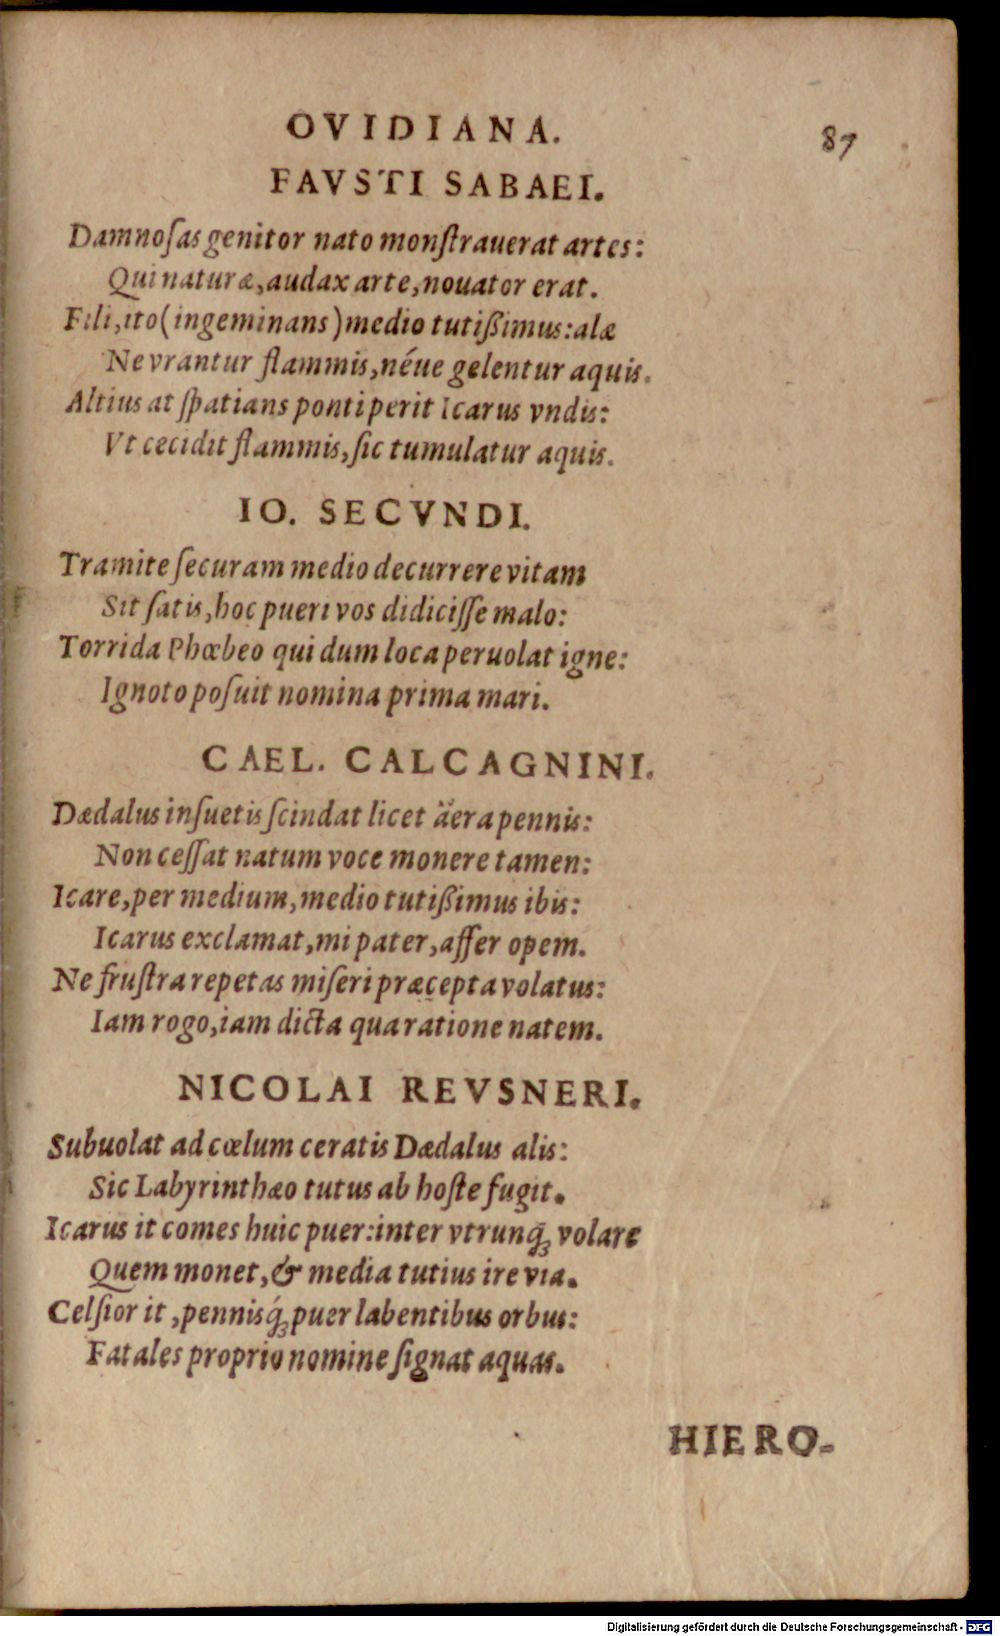 OVIDIANA.
87
FAVSTI SABAEI.
Damnoſas genitor nato monſtrauerat artes:
Qui naturæ, audax arte, nouator erat.
Fili, ito (ingeminans) medio tutißimus: alæ
Ne vrantur flammis, néue gelentur aquis.
Altius at ſpatians ponti perit Icarus vndis:
Vt cecidit flammis, ſic tumulatur aquis.
IO. SECVNDI.
Tramite ſecuram medio decurrere vitam
Sit ſatis, hoc pueri vos didiciſſe malo:
Torrida Phœbeo qui dum loca peruolat igne:
Ignoto poſuit nomina prima mari.
CAEL. CALCAGNINI.
Dædalus inſuetis ſcindat licet äera pennis:
Non ceſſat natum voce monere tamen:
Icare, per medium, medio tutißimus ibis:
Icarus exclamat, mi pater, affer opem.
Ne fruſtra repetas miſeri præcepta volatus:
Iam rogo, iam dicta qua ratione natem.
NICOLAI REVSNERI.
Subuolat ad cœlum ceratis Dædalus alis:
Sic Labyrinthæo tutus ab hoſte fugit.
Icarus it comes huic puer: inter vtrunq́; volare
Quem monet, & media tutius ire via.
Celſior it, pennisq́; puer labentibus orbus:
Fatales proprio nomine ſignat aquas.
HIERO-
Digitalisierung gefördert durch die Deutsche Forschungsgemeinschaft - DFG